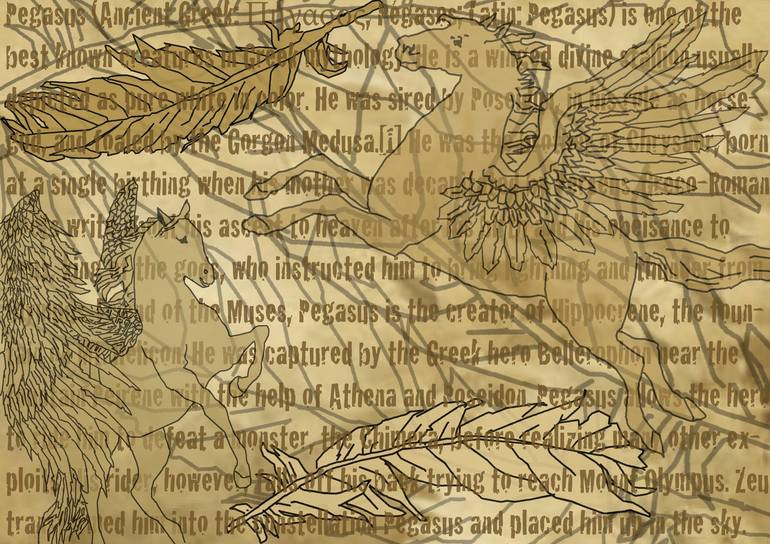 Pegasus (Ancient Greek: Πήγασος, Pegasos; Latin: Pegasus) is one of the
best known creatures in Greek mythology. He is a winged divine stallion usually
depicted as pure white in color. He was sired by Poseidon, in his role as horse-
god, and foaled by the Gorgon Medusa.[i] He was the brother of Chrysaor, born
at a single birthing when his mother was decap Greco-Roman
writ his ascent to heaven after his obeisance to
the gods, who instructed him to bring lightning and thunder from
of the Muses, Pegasus is the creator of Hippocrene, the foun-
elicon. He was captured by the Greek hero Bellerophon near the
eirene with the help of Athena and Poseidon. Pegasus allows the hero
to him to defeat a monster, the Chimera, before realizing many other ex-
ploits. His rider, however, falls off his back trying to reach Mount Olympus. Zeu
tran ed him into the constellation Pegasus and placed him up in the sky.